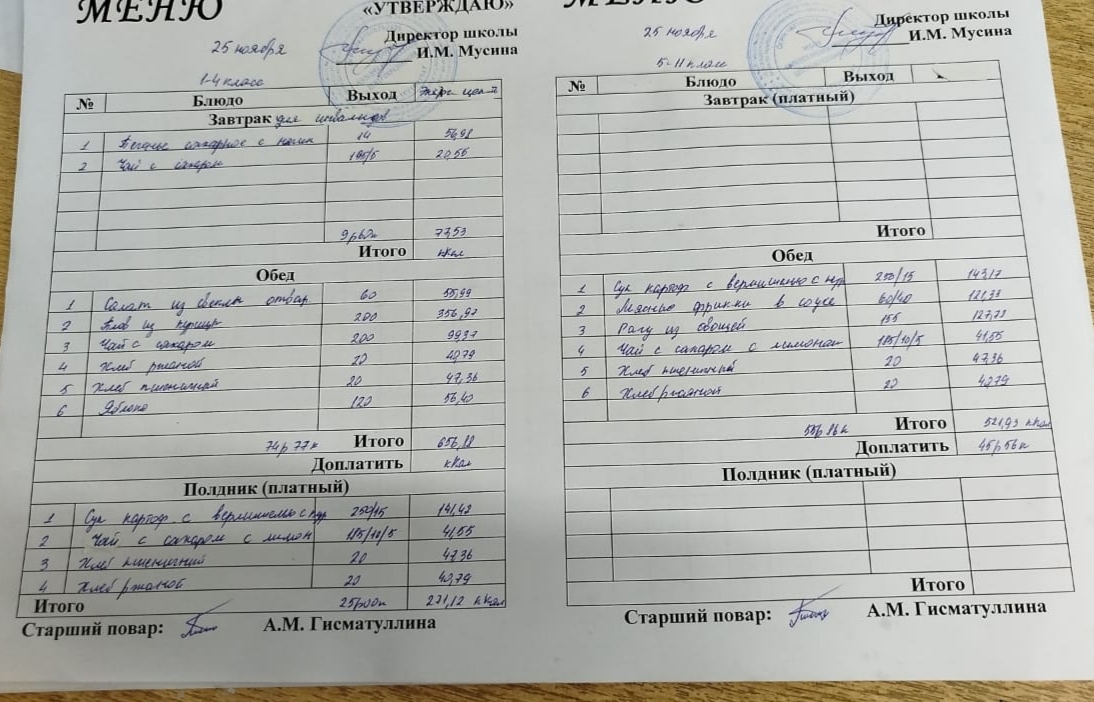 МЕНЮ
«УТВЕРЖДАЮ»
Директор школы
25 ноября И.М. Мусина
1-4 класс
№ Блюдо Выход
Завтрак для инвалидов
1 Печенье сахарное с 14 56,98
2 Чай с сахаром 195/5 20,55
9р60к 77,53
Итого ккал
Обед
1 Салат из свеклы отвар 60 55,99
2 Плов из курицы 200 356,97
3 Чай с сахаром 200 99,37
4 Хлеб ржаной 20 40,79
5 Хлеб пшеничный 20 47,36
6 Яблоко 120 56,40
74р 77к Итого 656,88
Доплатить ккал
Полдник (платный)
1 Суп картоф. с вермишелью с кур 250/15 141,42
2 Чай с сахаром с лимон 185/10/5 41,55
3 Хлеб пшеничный 20 47,36
4 Хлеб ржаной 20 40,79
Итого 25р00к 271,12 ккал
Старший повар: А.М. Гисматуллина
МЕНЮ
Директор школы
25 ноября И.М. Мусина
5-11 класс
№ Блюдо Выход
Завтрак (платный)
Итого
Обед
1 Суп картоф с вермишелью с кур 250/15 143,17
2 Мясные фрикки в соусе 60/40 121,33
3 Рагу из овощей 155 127,73
4 Чай с сахаром с лимоном 185/10/5 41,55
5 Хлеб пшеничный 20 47,36
6 Хлеб ржаной 20 40,79
Итого 521,93 ккал
Доплатить 45р56к
Полдник (платный)
Итого
Старший повар: А.М. Гисматуллина